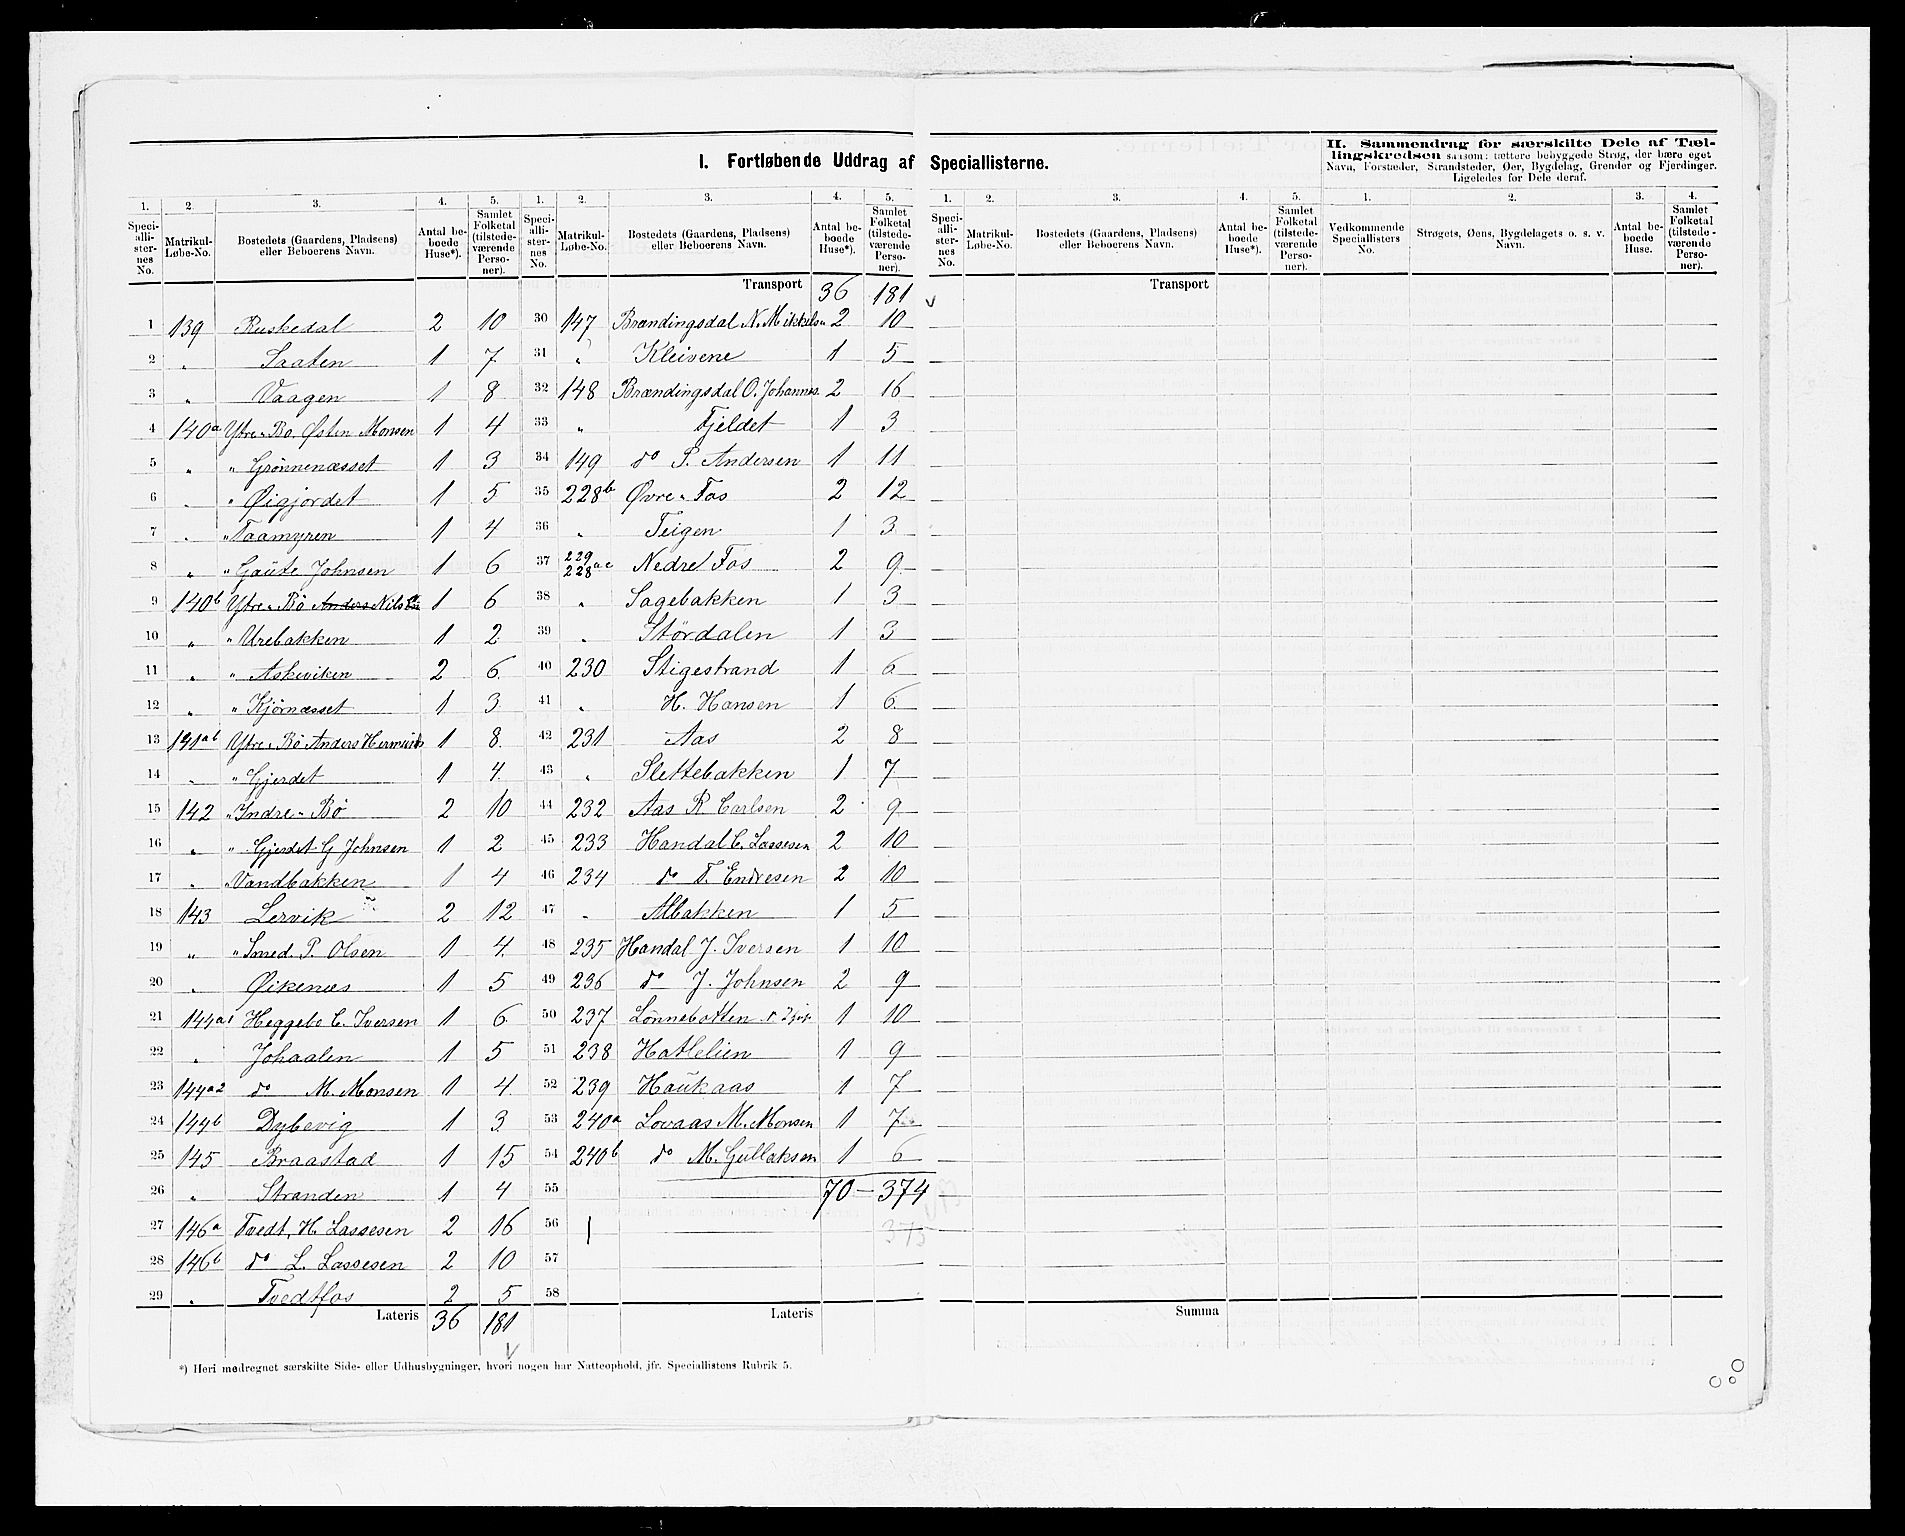 I. Fortløbende Uddrag af Speciallisterne.
II. Sammendrag for særskilte Dele af Tællingskredsen saasom: tættere bebyggede Strøg, der bære eget
Navn, Forstæder, Strandsteder, Øer, Bygdelag, Grender og Fjerdinger.
Ligeledes for Dele deraf.
1. 2. 3. 4. 5. 1. 2. 3. 4. 5. 1. 2. 3. 4. 5. 1. 2. 3. 4.
Speciallisternes No. Matrikul-Løbe-No. Bostedets (Gaardens, Pladsens) eller Beboerens Navn. Antal beboede Huse*). Samlet Folketal (tilstedeværende Personer).
Speciallisternes No. Matrikul-Løbe-No. Bostedets (Gaardens, Pladsens) eller Beboerens Navn. Antal beboede Huse*). Samlet Folketal (tilstedeværende Personer).
Speciallisternes No. Matrikul-Løbe-No. Bostedets (Gaardens, Pladsens) eller Beboerens Navn. Antal beboede Huse*). Samlet Folketal (tilstedeværende Personer).
Vedkommende Speciallisters No. Strøgets, Øens, Bygdelagets o. s. v. Navn. Antal beboede Huse. Samlet Folketal (tilstedeværende Personer).
1 139 Ruskedal 2 10
2 " Saaten 1 7
3 " Vaagen 1 8
4 140a Ytre-Bø Østen Monsen 1 4
5 " " Grønnenæsset 1 3
6 " " Øigjordet 1 5
7 " " Taamyren 1 4
8 " " Gaute Johnsen 1 6
9 140b Ytre-Bø Anders Nils 1 6
10 " " Urebakken 1 2
11 " " Askeviken 2 6
12 " " Kjørnæsset 1 3
13 141ab Ytre-Bø Anders 1 8
14 " " Gjerdet 1 4
15 142 " Indre-Bø 2 10
16 " " Gjerdet G Johnsen 1 2
17 " " Vandbakken 1 4
18 143 Lervik 2 12
19 " " Smed. P. Olsen 1 4
20 " Øikenæs 1 5
21 144a1 Heggebø C. Iversen 1 6
22 " Johaalen 1 5
23 144a2 do M. Monsen 1 4
24 144b Dybevig 1 3
25 145 Braastad 1 15
26 " Stranden 1 4
27 146a Tvedt, H. Lassesen 2 16
28 146b do L. Lassesen 2 10
29 " Tvedtfos 2 5
Lateris 36 181
Transport 36 181
30 147 Brændingsdal N. Mikkels 2 10
31 " Kleivene 1 5
32 148 Brændingsdal O. Johannes. 2 16
33 " Fjeldet 1 3
34 149 do P. Andersen 1 11
35 228b Øvre-Fos 2 12
36 " Teigen 1 3
37 229 228 ac Nedre Fos 2 9
38 " Sagebakken 1 3
39 " Størdalen 1 3
40 230 Stigestrand 1 6
41 " H. Hansen 1 6
42 231 Aas 2 8
43 " Slettebakken 1 7
44 232 Aas R. Carlsen 2 9
45 233 Handal C. Lassesen 2 10
46 234 do T. Endresen 2 10
47 " Albakken 1 5
48 235 Handal J. Iversen 1 10
49 236 do J. Johnsen 2 9
50 237 Lønnebotten 1 10
51 238 Hatlelien 1 9
52 239 Haukaas 1 7
53 240a Lovaas M. Monsen 1 7
54 240b do M. Gullaksen 1 6
55 70 — 374
56 375
57
58
Lateris
Transport
Summa
*) Heri medregnet særskilte Side- eller Udhusbygninger, hvori nogen har Natteophold, jfr. Speciallistens Rubrik 5.